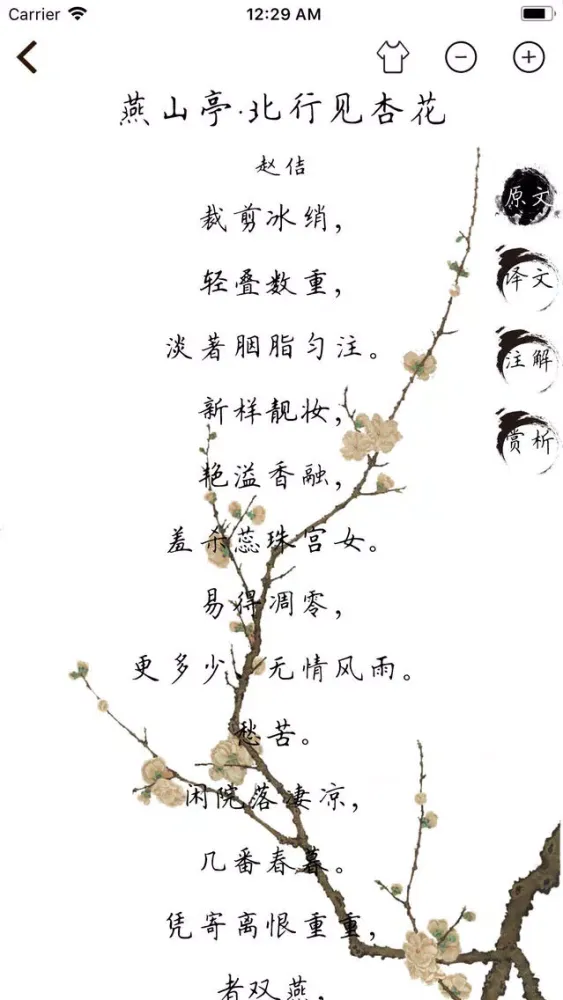 Carrier 12:29 AM
燕山亭·北行见杏花
赵佶
原文
译文
注解
赏析
裁剪冰绡，
轻叠数重，
淡著胭脂匀注。
新样靓妆，
艳溢香融，
羞杀蕊珠宫女。
易得凋零，
更多少、无情风雨。
愁苦。
闲院落凄凉，
几番春暮。
凭寄离恨重重，
者双燕，